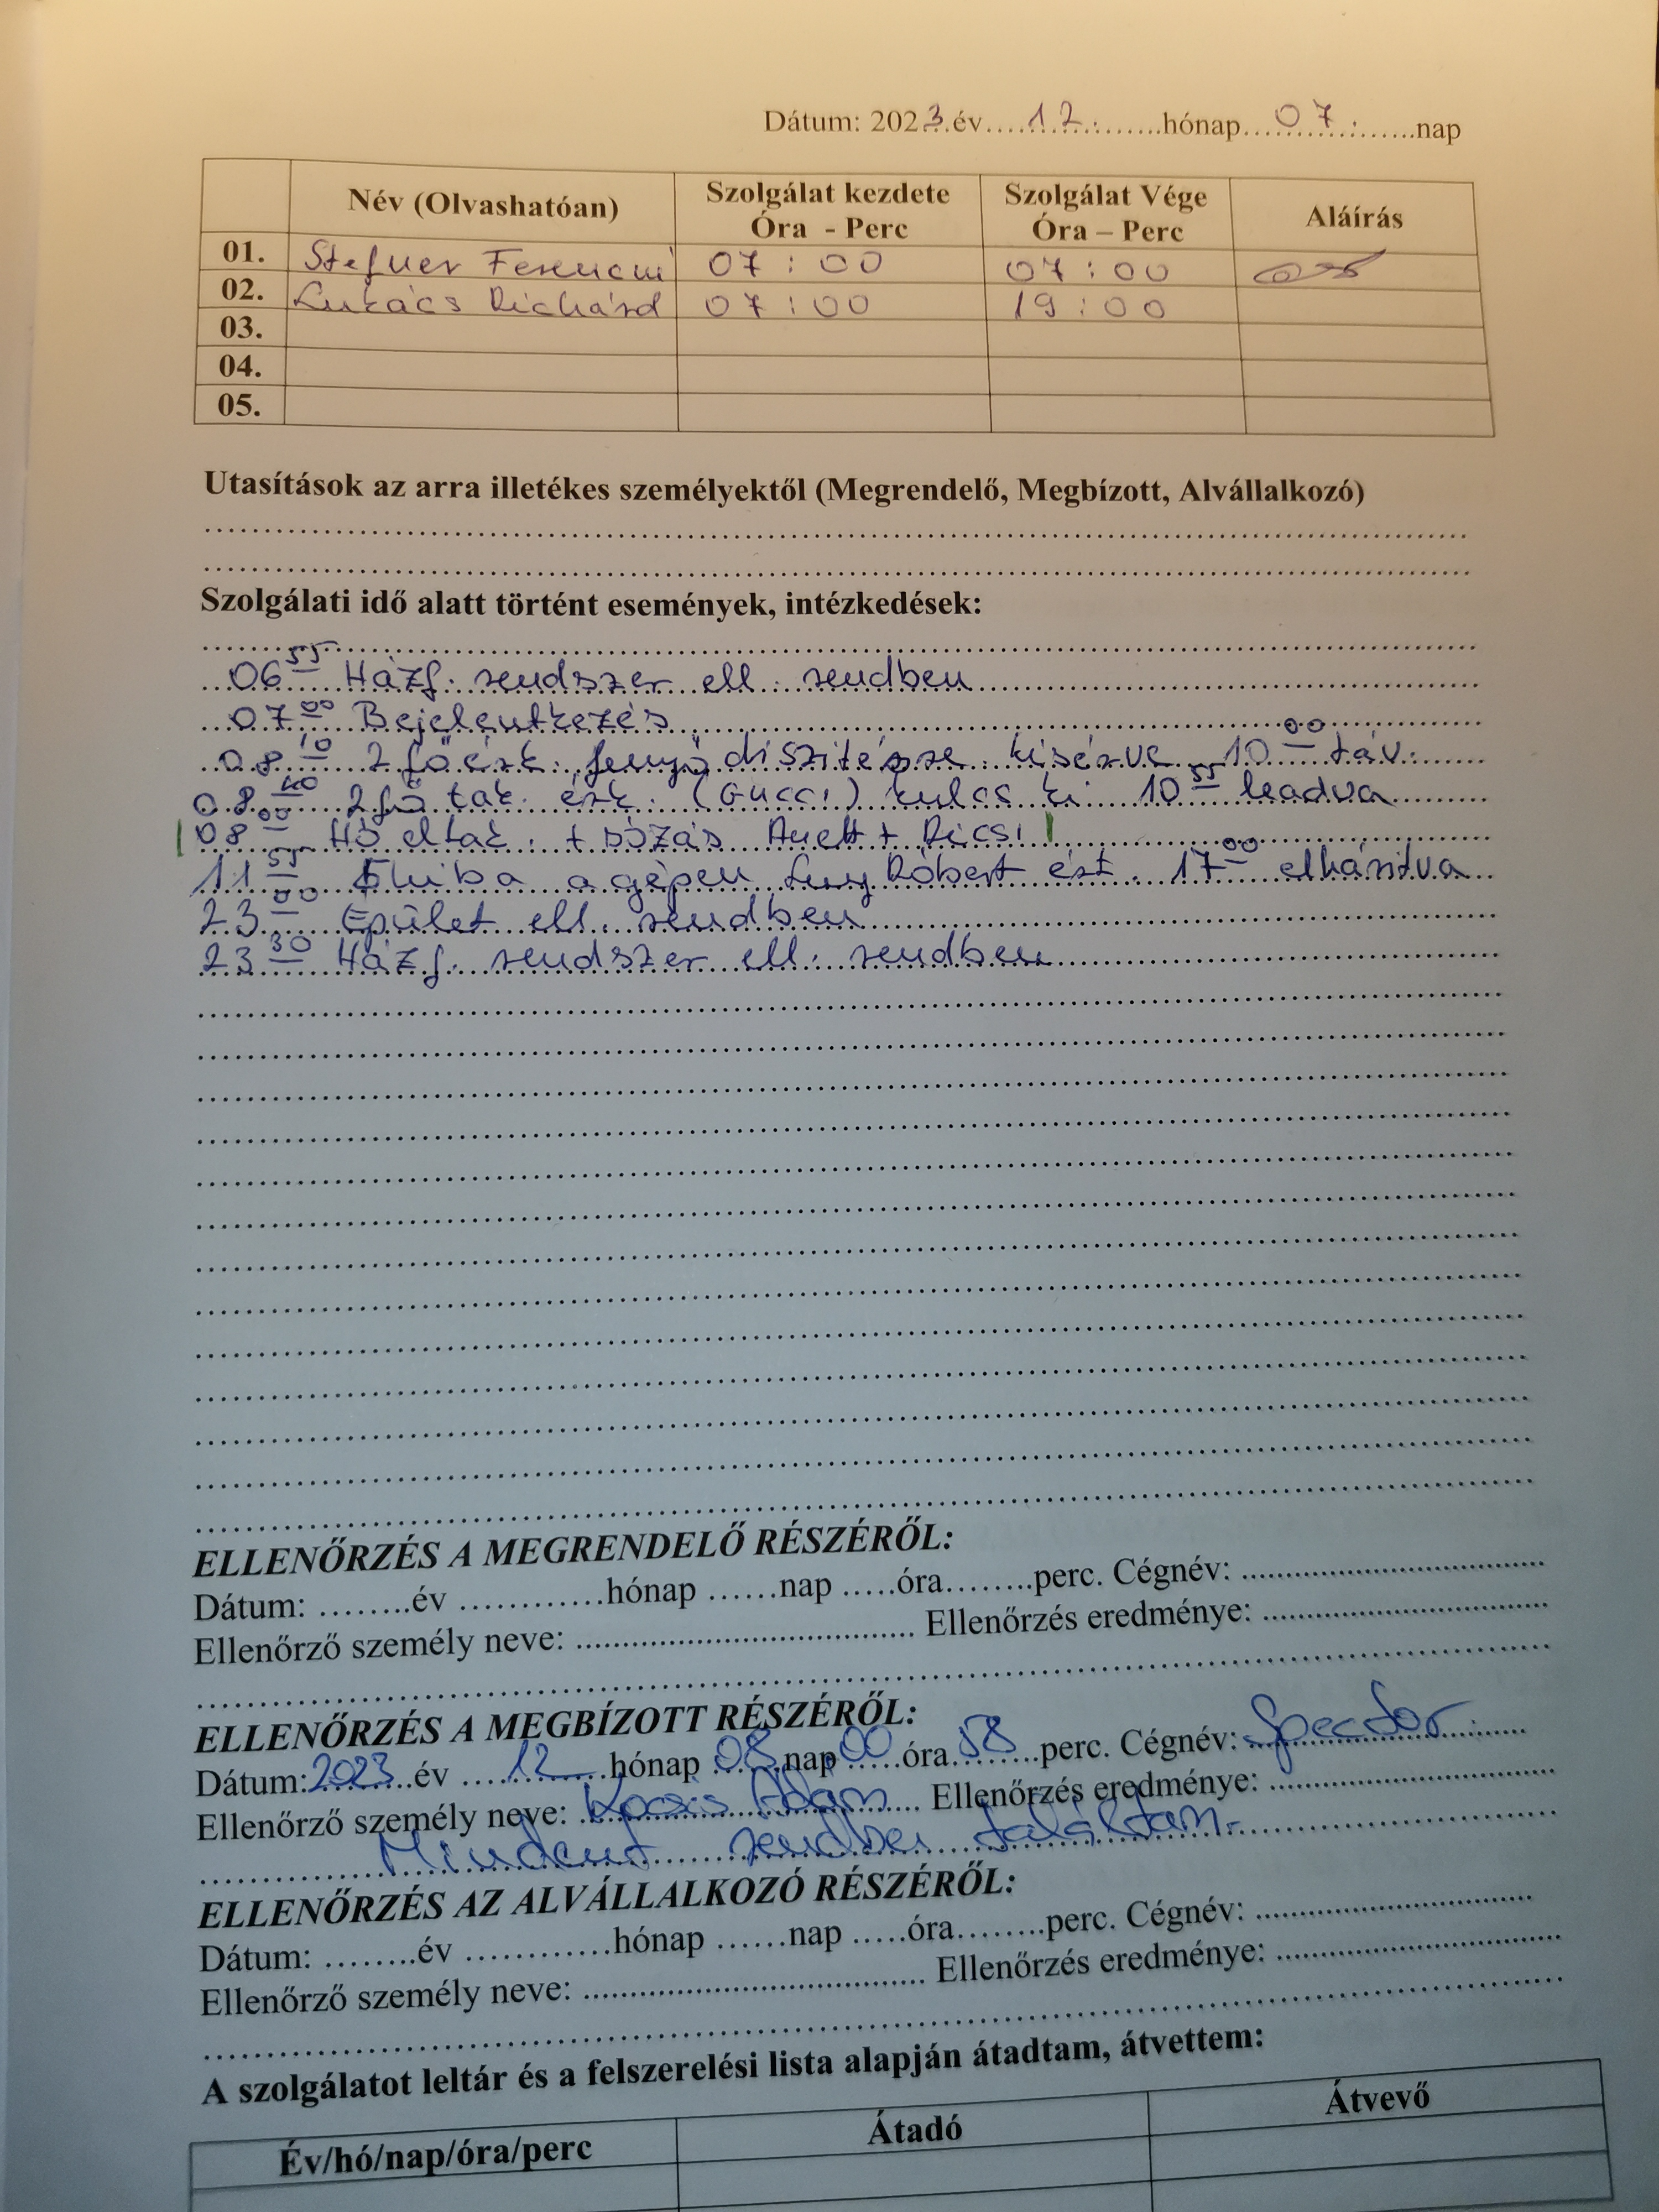 Dátum: 2023 év 12. hónap 07. nap
Név (Olvashatóan) Szolgálat kezdete Óra - Perc Szolgálat Vége Óra – Perc Aláírás
01. Stefner Ferencné 07:00 07:00
02. Lukács Richárd 07:00 19:00
03.
04.
05.
Utasítások az arra illetékes személyektől (Megrendelő, Megbízott, Alvállalkozó)
Szolgálati idő alatt történt események, intézkedések:
06 55 Házf. rendszer ell. rendben
07 00 Bejelentkezés
08 10 2 fő érk. fenyő díszítésre kisérve 10 00 táv.
08 40 2 fő tak. érk. (Gucci) kulcs ki 10 55 leadva
08 00 Hó eltak. + sózás Anett + Ricsi
11 55 hiba a gépen Róbert ért. 17 00 elhárítva
23 00 Épület ell. rendben
23 30 Házf. rendszer ell. rendben
ELLENŐRZÉS A MEGRENDELŐ RÉSZÉRŐL:
Dátum: ........év ............hónap ......nap .....óra........perc. Cégnév: ..........
Ellenőrző személy neve: .......... Ellenőrzés eredménye: ..........
ELLENŐRZÉS A MEGBÍZOTT RÉSZÉRŐL:
Dátum: 2023 év 12 hónap 08 nap 00 óra 58 perc. Cégnév: Spector
Ellenőrző személy neve: Kocsis Ádám Ellenőrzés eredménye:
Mindent rendben találtam.
ELLENŐRZÉS AZ ALVÁLLALKOZÓ RÉSZÉRŐL:
Dátum: ........év ............hónap ......nap .....óra........perc. Cégnév: ..........
Ellenőrző személy neve: .......... Ellenőrzés eredménye: ..........
A szolgálatot leltár és a felszerelési lista alapján átadtam, átvettem:
Év/hó/nap/óra/perc Átadó Átvevő